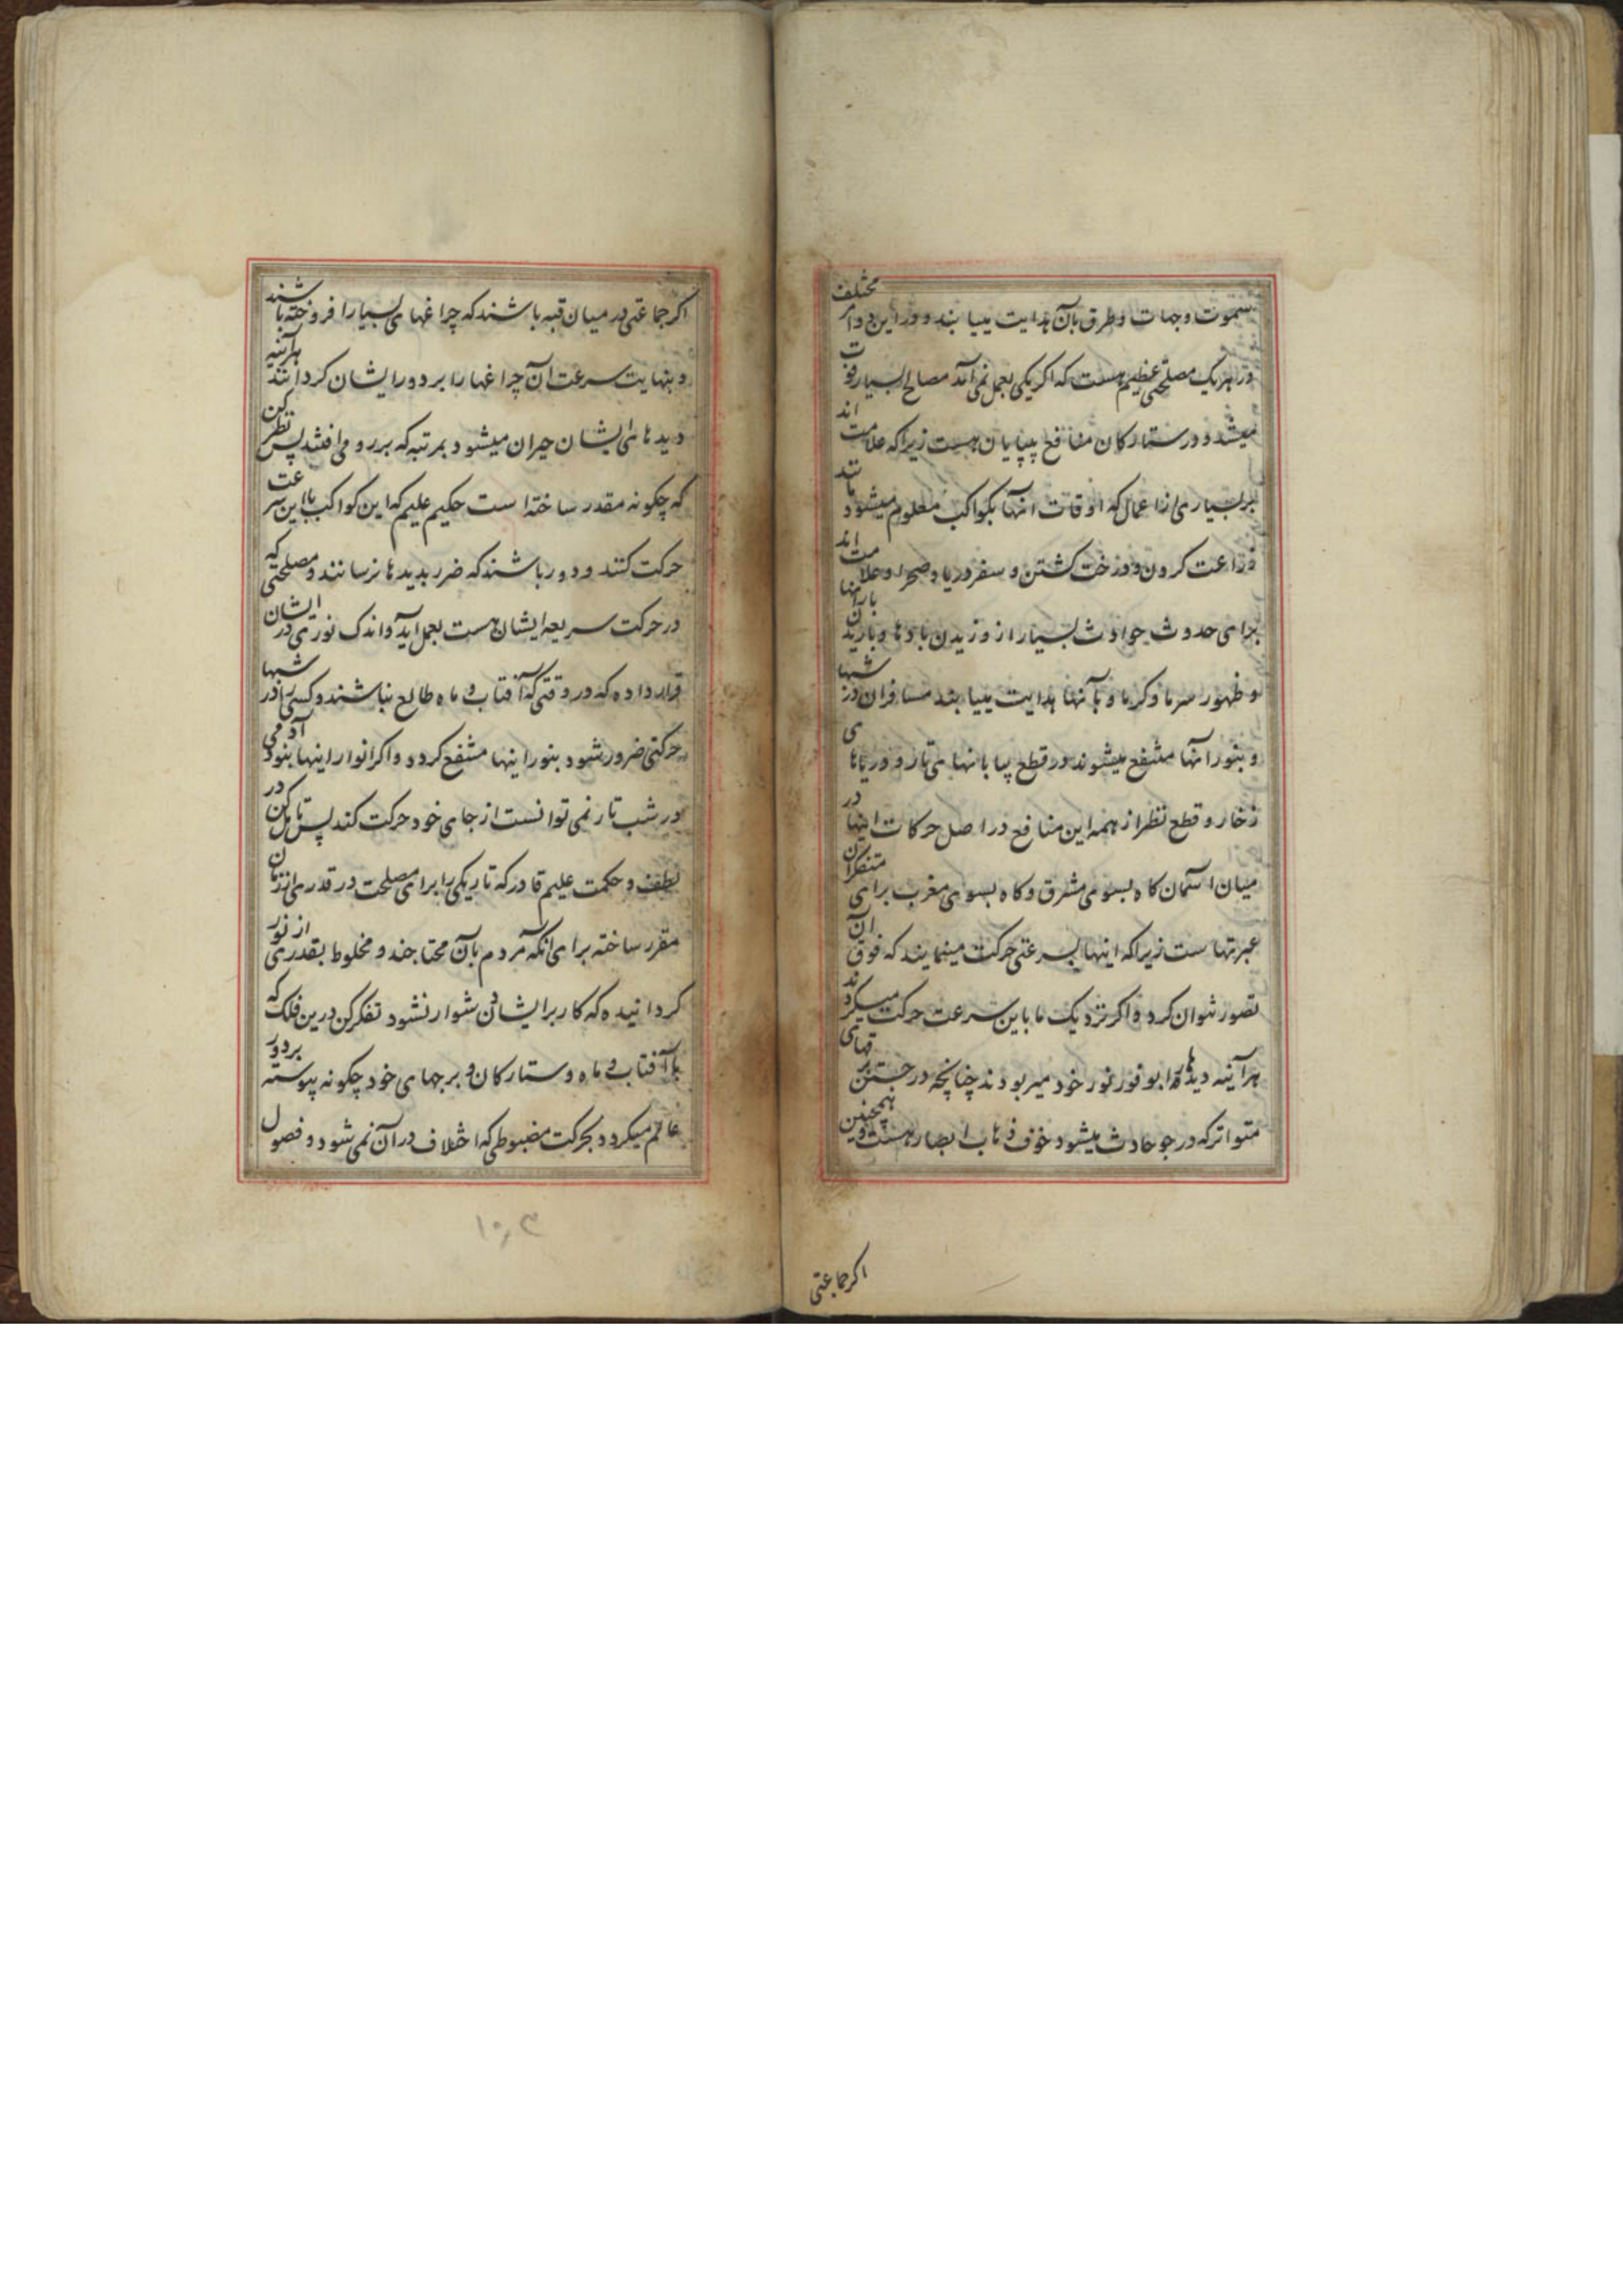 سموت وجهات وطرق بآن هدایت مییابند ودر این دو امر مختلف
در هر یک مصلحتی عظیم هست که اکر یکی بعمل نمی آمد مصالح بسیار فوت
میشد و در ستارکان منافع بیپایان هست زیراکه علامت اند
بر بسیاری از اعمال که اوقات انها بکواکب معلوم میشود مانند
زراعت کردن و درخت کشتن و سفر دریا و صحرا و علامت اند
برای حدوث حوادث بسیار از وزیدن بادها و باریدن بارانها
و ظهور سرما و کرما و بآنها هدایت مییابند مسافران در شبها
و بنور انها منتفع میشوند در قطع بیابانهای تار و دریاهای
زخار و قطع نظر از همه این منافع در اصل حرکات اینها در
میان اسمان کاه بسوی مشرق و کاه بسوی مغرب برای متفکران
عبرتهاست زیراکه اینها بسرعتی حرکت مینمایند که فوق آن
تصور نتوان کرد و اکر نزدیک ما باین سرعت حرکت میکردند
هرآینه دیدها را بوفور نور خود میربودند چنانچه در جستن برقهای
متواتر که در جو حادث میشود خوف ذهاب ابصار هست و همچنین
اکر جماعتی
اکر جماعتی در میان قبه باشند که چراغهای بسیار افروخته باشند
و بنهایت سرعت آن چراغها را بر دور ایشان کردانند هرآینه
دیدهای ایشان حیران میشود بمرتبه که بر رو می افتند پس نظر کن
که چکونه مقدر ساخته است حکیم علیم که این کواکب با این سرعت
حرکت کنند و دور باشند که ضرر بدیدها نرسانند و مصلحتی که
در حرکت سریعه ایشان هست بعمل آید و اندک نوری در ایشان
قرار داده که در وقتی که آفتاب و ماه طالع نباشند و کسی را در شبها
حرکتی ضرور شود بنور اینها منتفع کردد و اکر انوار اینها نبود آدمی
در شب تار نمی توانست از جای خود حرکت کند پس تامل کن در
لطف و حکمت علیم قادر که تاریکی را برای مصلحت در قدری از زمان
مقرر ساخته برای آنکه مردم بآن محتاجند و مخلوط بقدری از نور
کردانیده که کار بر ایشان دشوار نشود تفکر کن درین فلک که
با آفتاب و ماه و ستارکان و برجهای خود چکونه پیوسته بر دور
عالم میکردد بحرکت مضبوطی که اختلاف در آن نمی شود و فصول